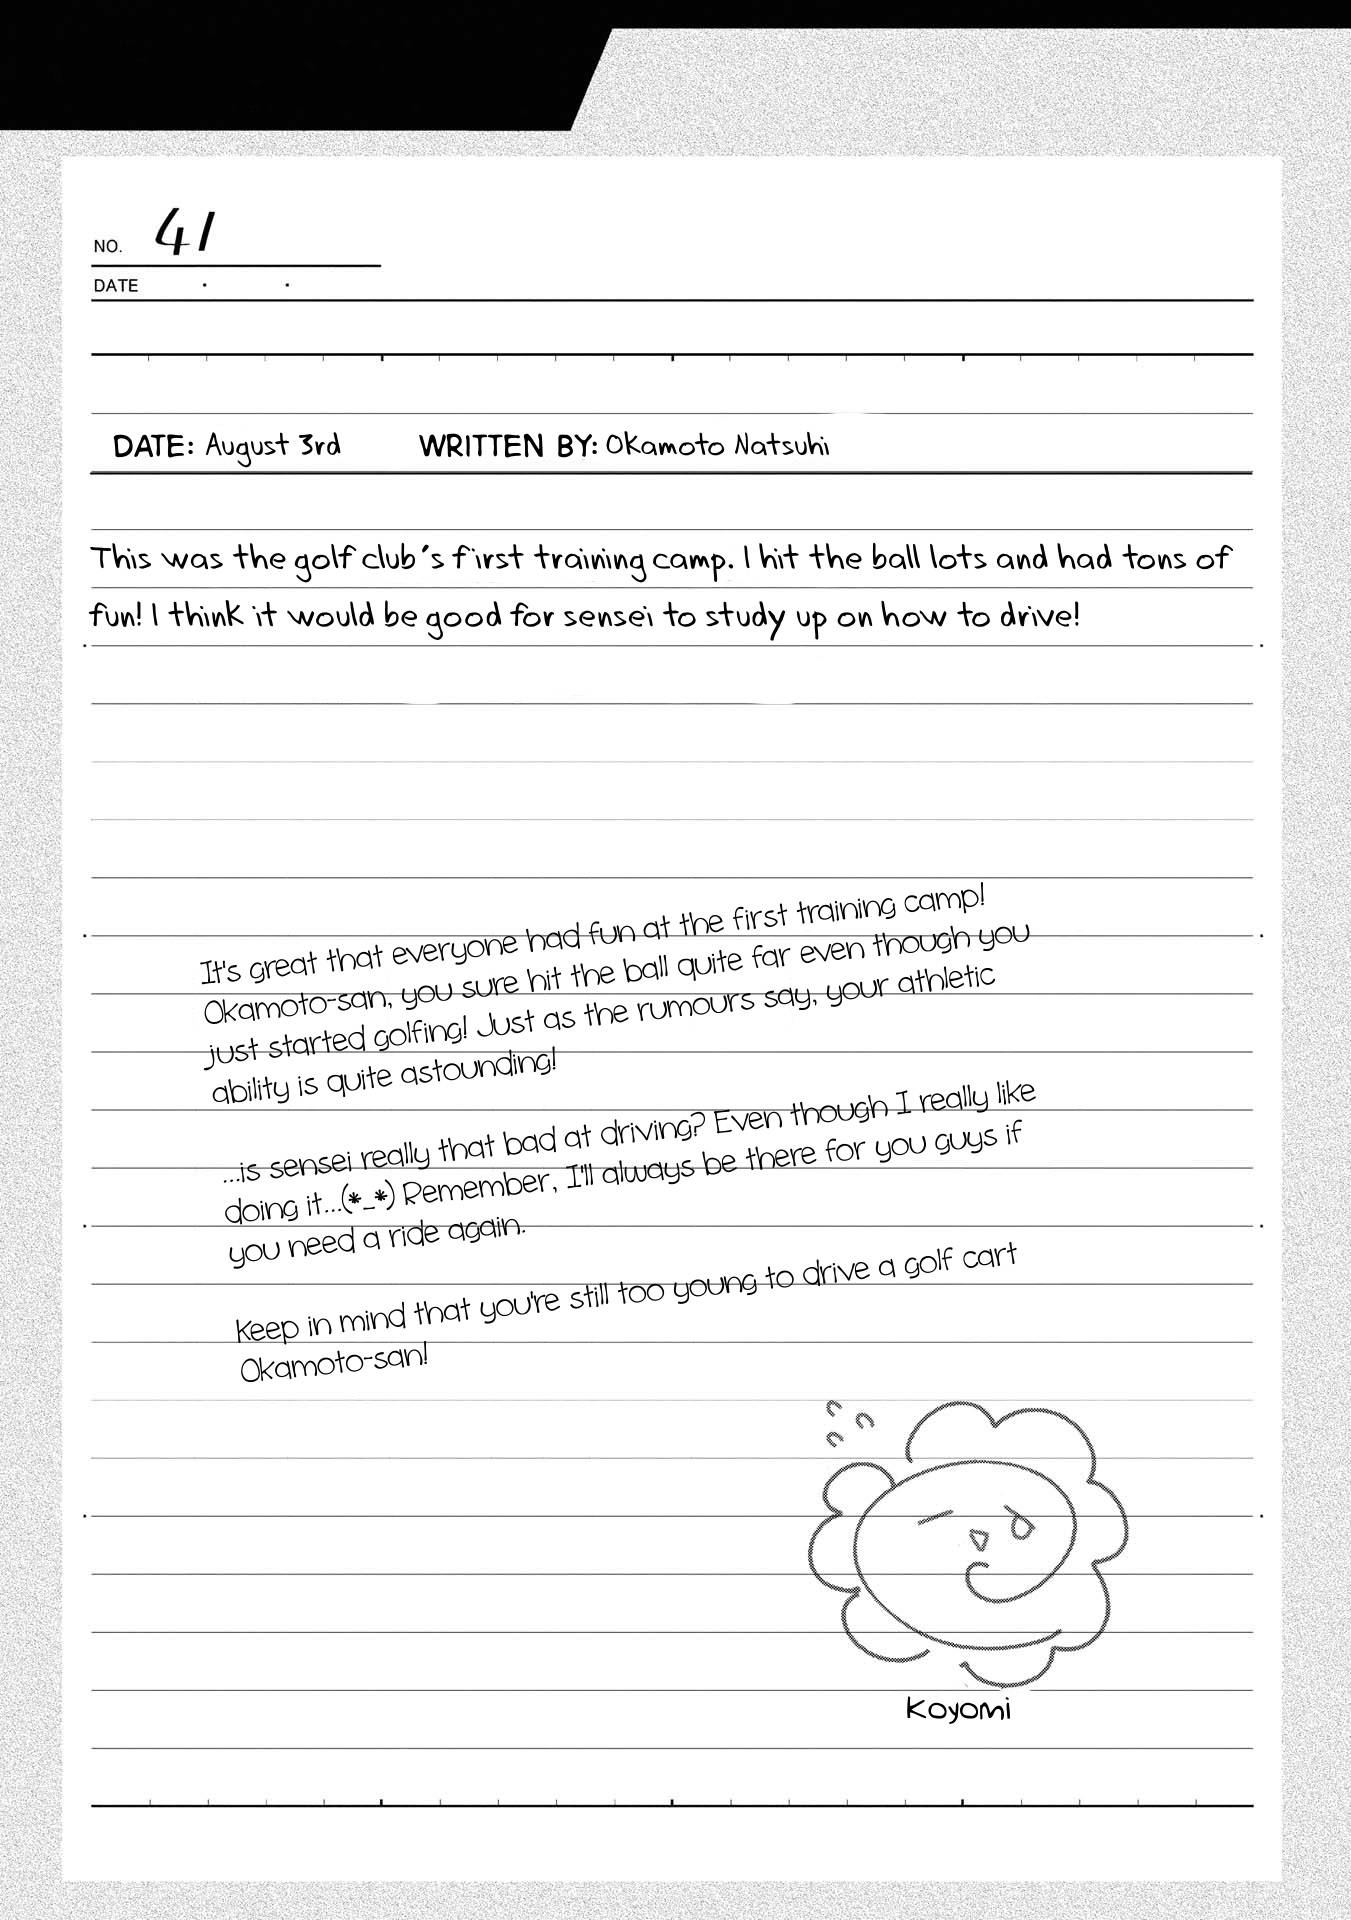 NO. 41
DATE . .
DATE: August 3rd WRITTEN BY: Okamoto Natsuhi
This was the golf club's first training camp. I hit the ball lots and had tons of
fun! I think it would be good for sensei to study up on how to drive!
It's great that everyone had fun at the first training camp!
Okamoto-san, you sure hit the ball quite far even though you
just started golfing! Just as the rumours say, your athletic
ability is quite astounding!
...is sensei really that bad at driving? Even though I really like
doing it...(*_*) Remember, I'll always be there for you guys if
you need a ride again.
Keep in mind that you're still too young to drive a golf cart
Okamoto-san!
Koyomi